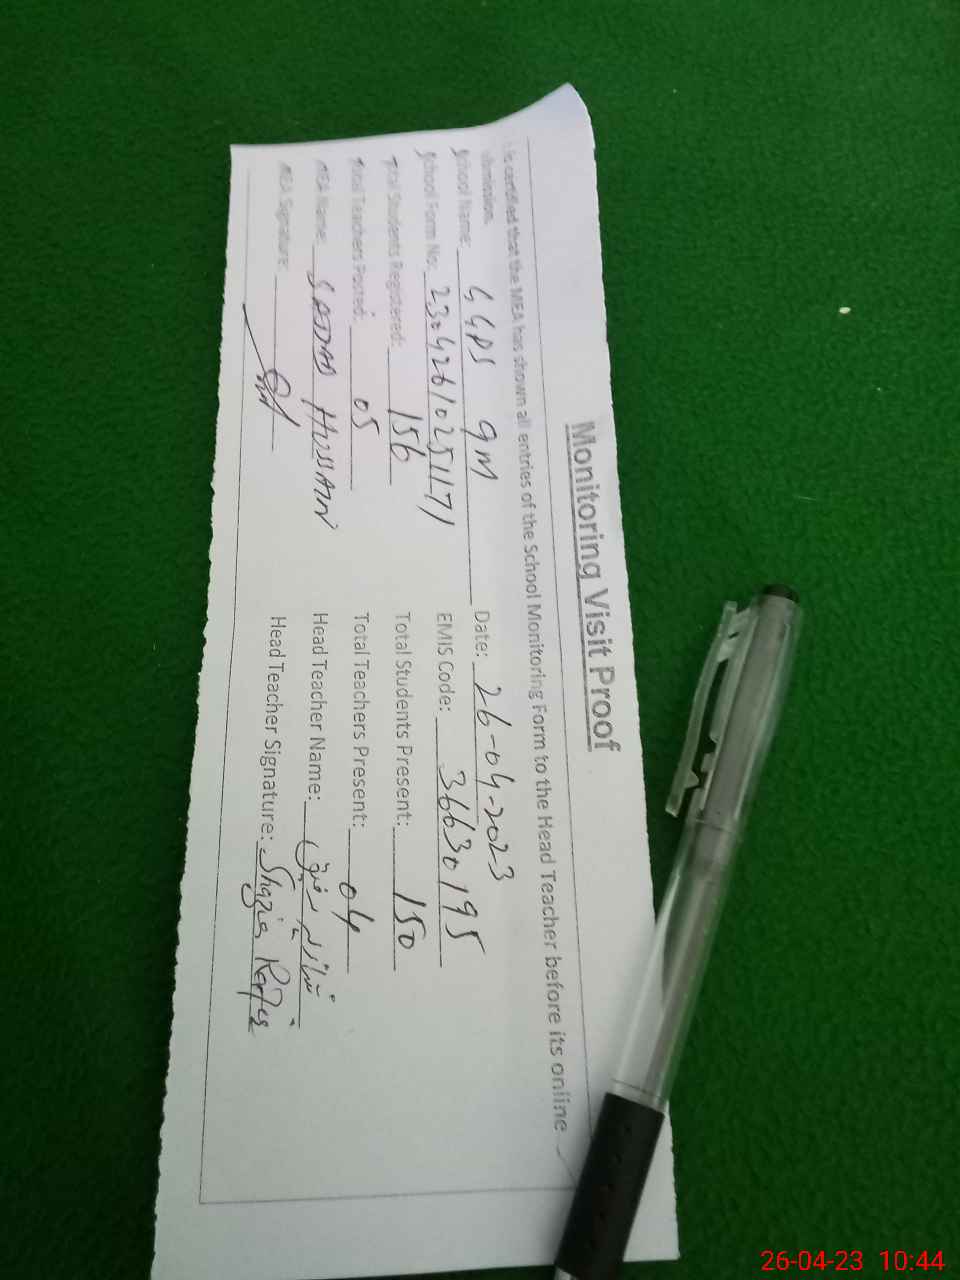 Monitoring Visit Proof
is certified that the MEA has shown all entries of the School Monitoring Form to the Head Teacher before its online
submission.
School Name: GGPS 9M Date: 26-04-2023
School Form No: 23042610251171 EMIS Code: 36630195
Total Students Registered: 156 Total Students Present: 150
Total Teachers Posted: 05 Total Teachers Present: 04
MEA Name: SAJJAD HUSSAIN Head Teacher Name: شازیہ رفیق
MEA Signature: Head Teacher Signature: Shazia Rafiq
26-04-23 10:44